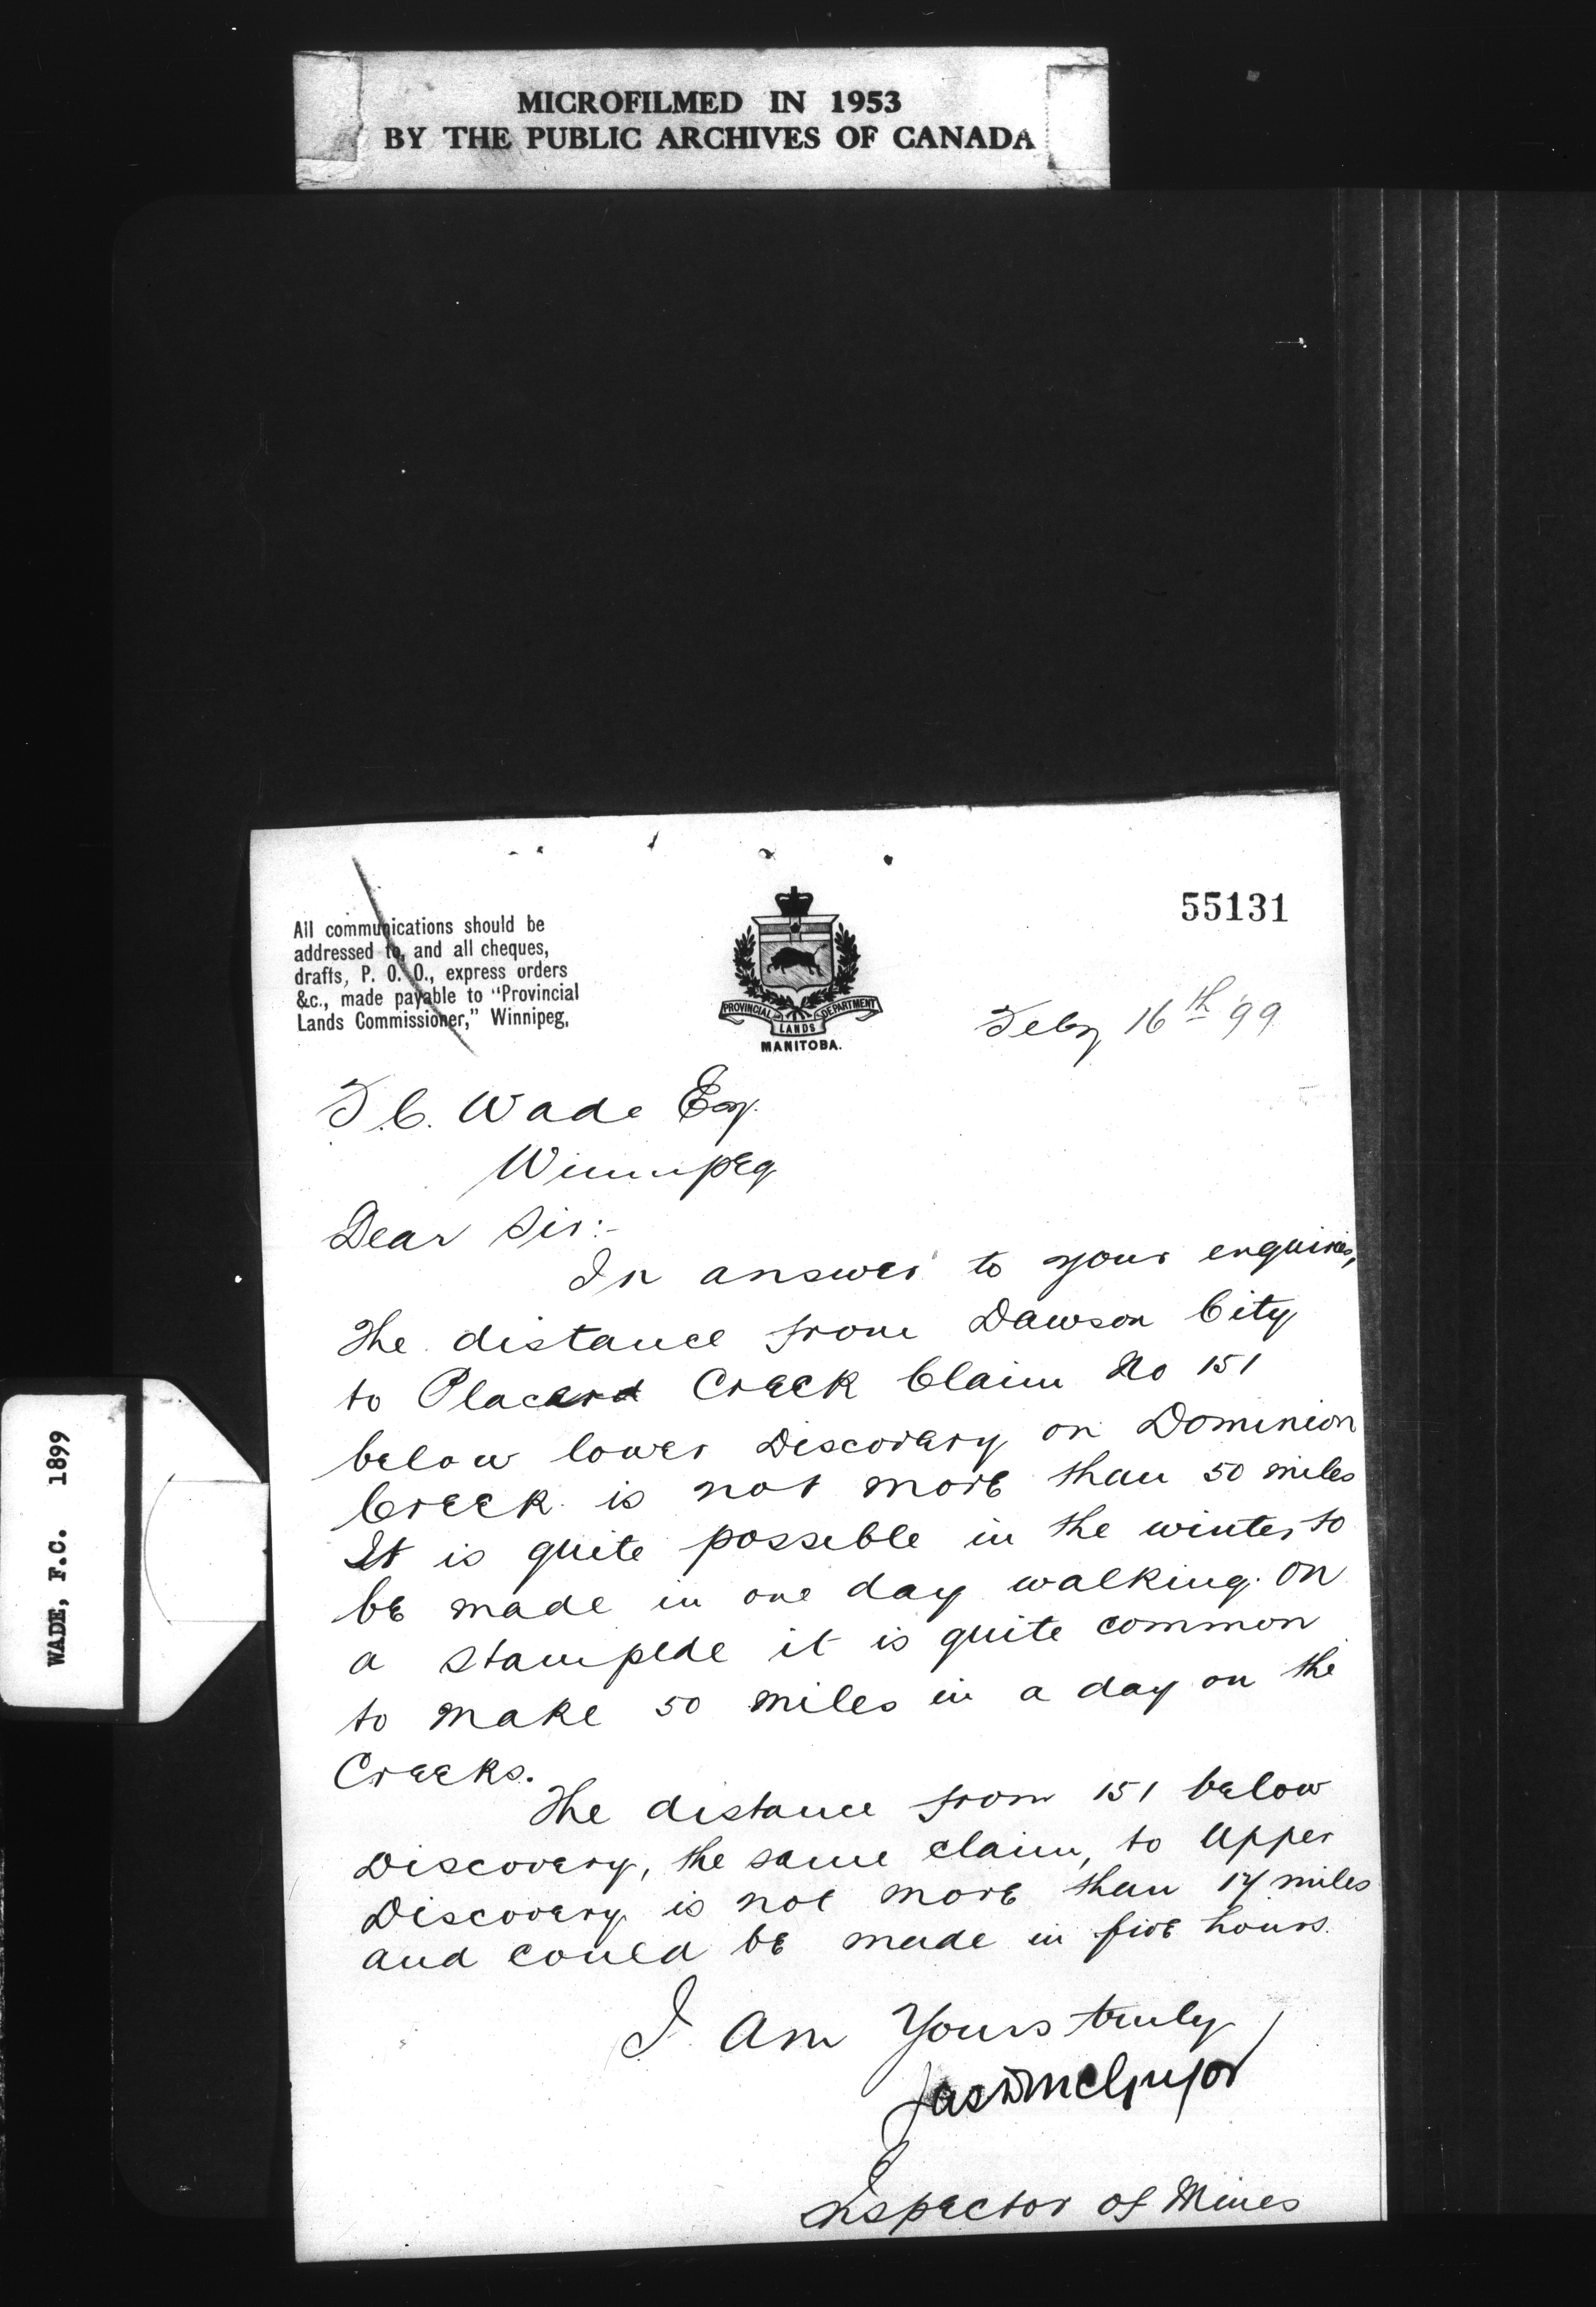 MICROFILMED IN 1953
BY THE PUBLIC ARCHIVES OF CANADA
WADE, F.C. 1899
55131
All communications should be
addressed to, and all cheques,
drafts, P. O. O., express orders
&c., made payable to "Provincial
Lands Commissioner," Winnipeg.
PROVINCIAL LANDS DEPARTMENT
MANITOBA.
Feby 16th '99
F. C. Wade Esq.
Winnipeg
Dear Sir:-
In answer to your enquiries,
The distance from Dawson City
to Creek Claim No 151
below lower Discovery on Dominion
Creek is not more than 50 miles
It is quite possible in the winter to
be made in one day walking. On
a stampede it is quite common
to make 50 miles in a day on the
Creeks.
The distance from 151 below
Discovery, the same claim, to Upper
Discovery is not more than 17 miles
and could be made in five hours.
I Am Yours truly
Jas McGregor
Inspector of Mines